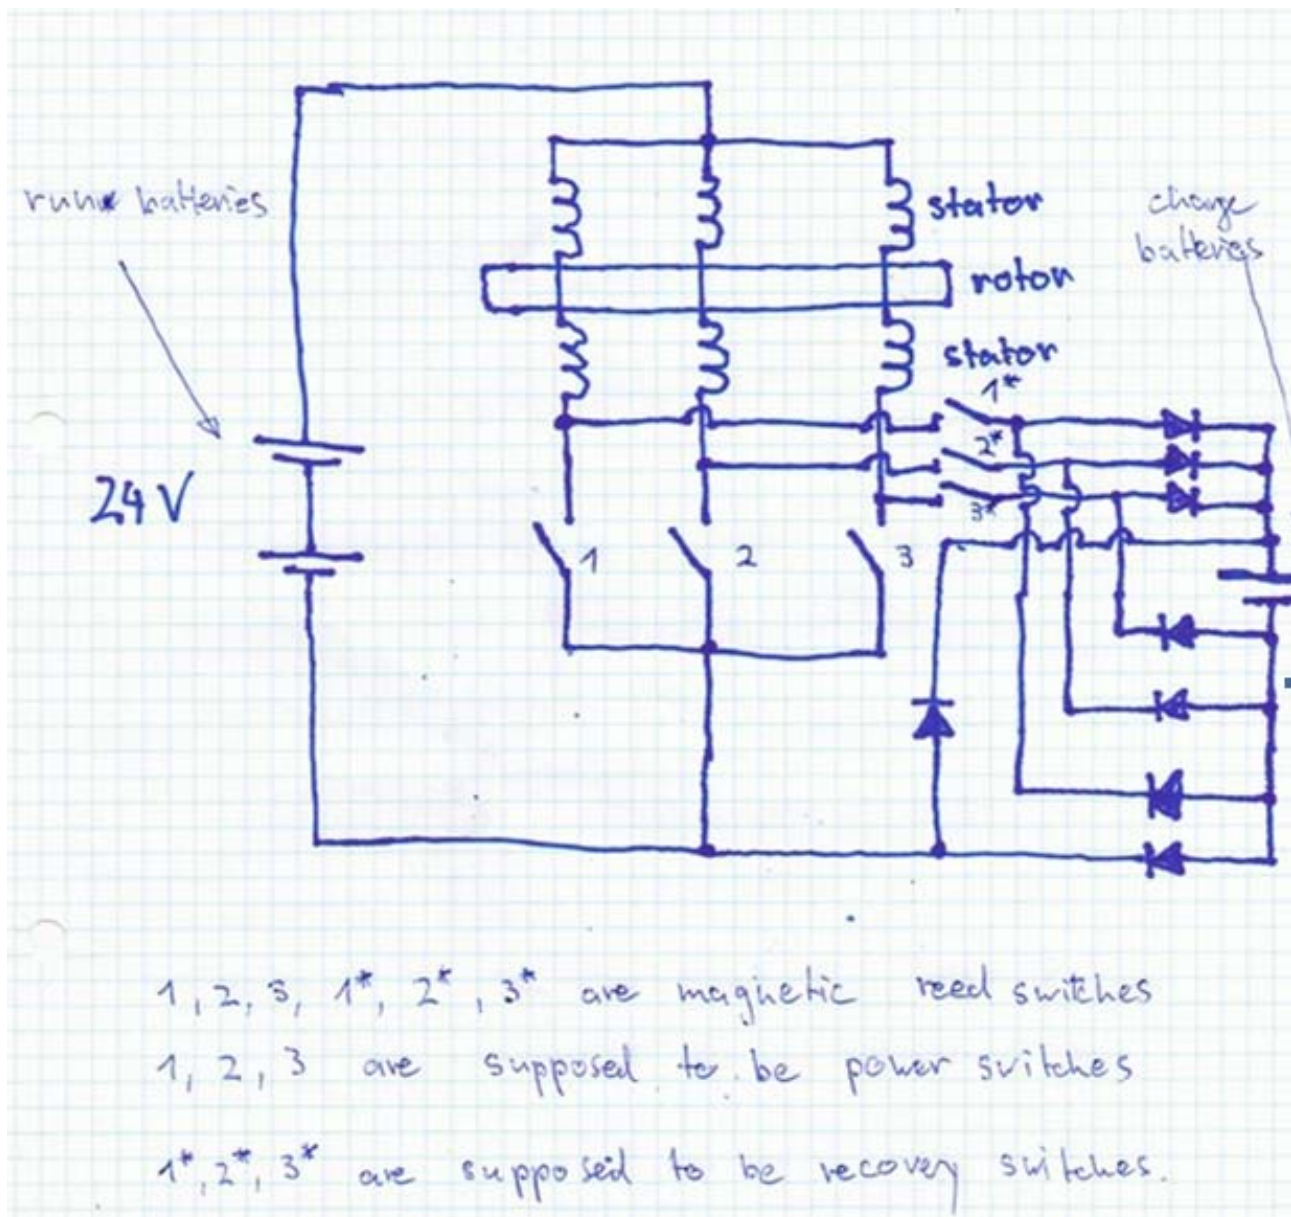 run batteries
stator
charge
batteries
rotor
stator
1*
2*
3*
24V
1
2
3
1, 2, 3, 1*, 2*, 3* are magnetic reed switches
1, 2, 3 are supposed to be power switches
1*, 2*, 3* are supposed to be recovery switches.